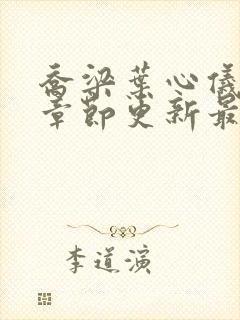 乔梁叶心仪
章节更新最
李道演